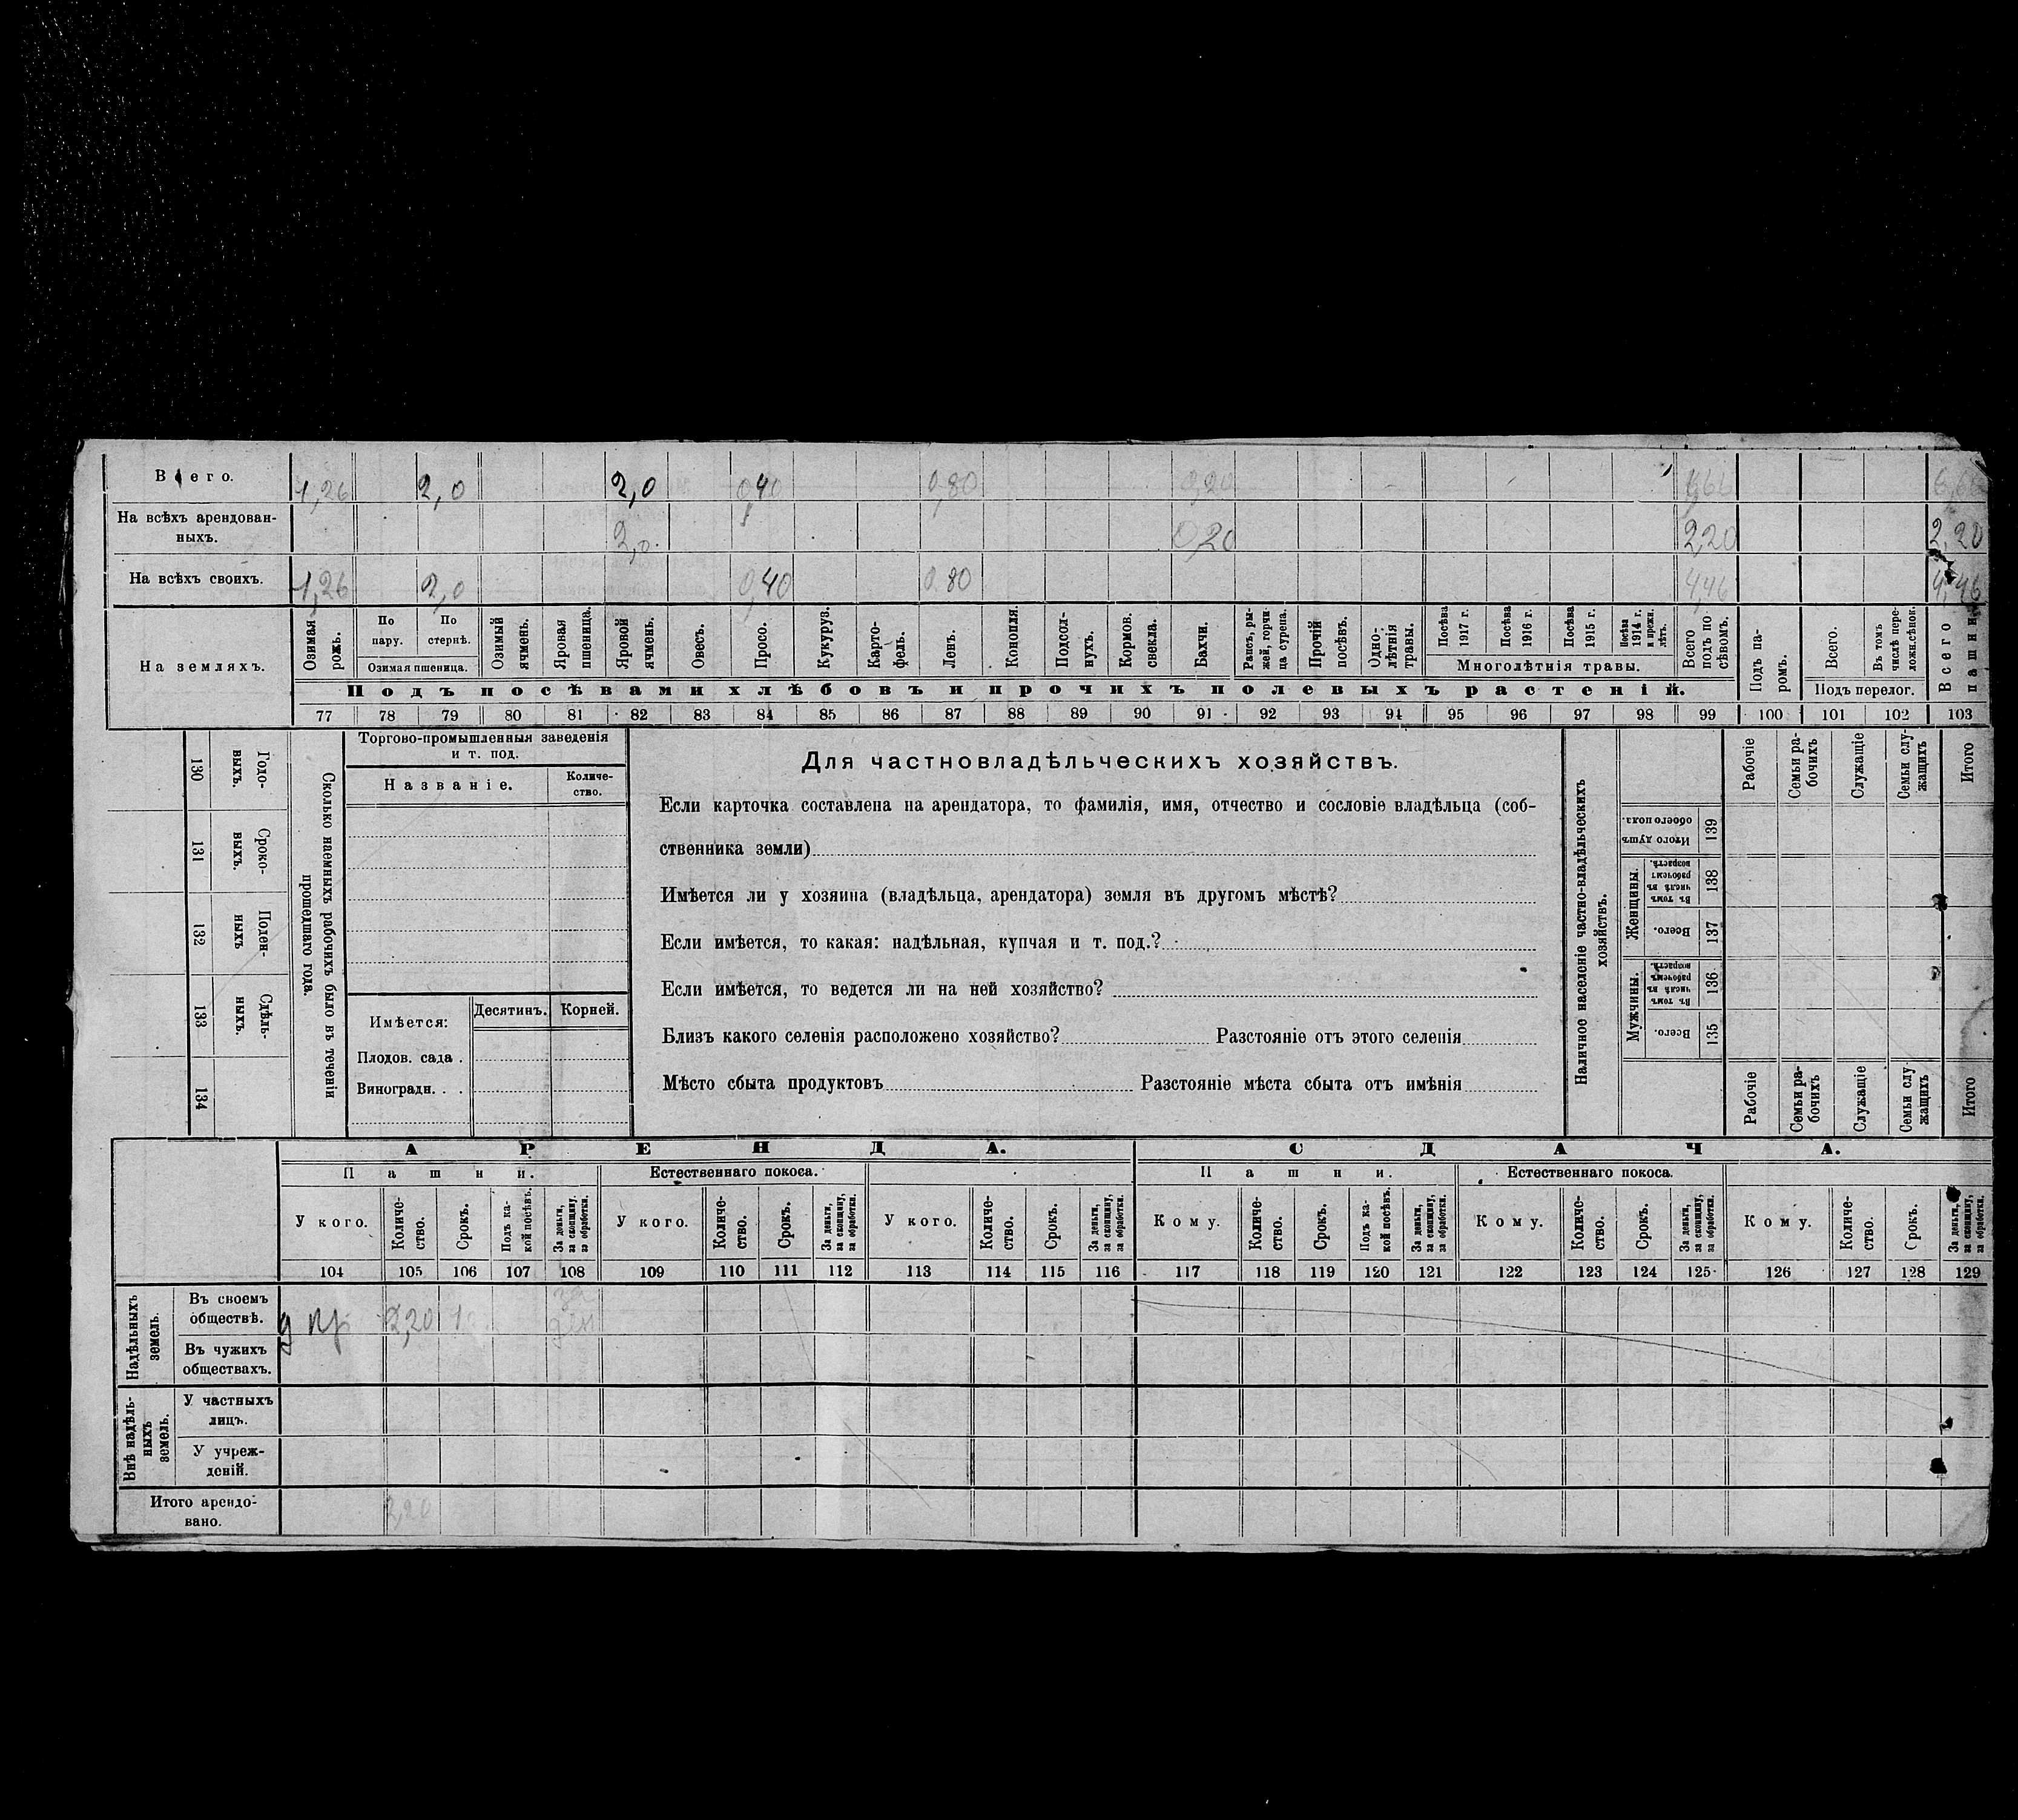 Всего. 1,26 2,0 2,0 0,40 0,80 0,20 6,66 6,66
На всѣхъ арендован-
ныхъ. 2,0 0,20 2,20 2,20
На всѣхъ своихъ. 1,26 2,0 0,40 0,80 4,46 4,46
На земляхъ.
Озимая рожь.
По пару.
По стернѣ.
Озимая пшеница.
Озимый ячмень.
Яровая пшеница.
Яровой ячмень.
Овесъ.
Просо.
Кукуруз.
Карто-
фель.
Ленъ.
Конопля.
Подсол-
нухъ.
Кормов. свекла.
Бахчи.
Рапсъ, ры-
жей, горчи-
ца сурепа.
Прочій посѣвъ.
Одно-
лѣтнія травы.
Посѣва 1917 г.
Посѣва 1916 г.
Посѣва 1915 г.
Посѣва 1914 г. и прежн. лѣтъ.
Многолѣтнія травы.
Всего подъ по
сѣвомъ.
Подъ па-
ромъ.
Всего.
Въ томъ числѣ пере-
ложн. сѣнок.
Подъ перелог.
Всего пашни.
Подъ посѣвами хлѣбовъ и прочихъ полевыхъ растеній.
77 78 79 80 81 82 83 84 85 86 87 88 89 90 91 92 93 94 95 96 97 98 99 100 101 102 103
130 Годо-
выхъ.
131 Сроко-
выхъ.
132 Поден-
ныхъ
133 Сдѣль-
ныхъ.
134
Сколько наемныхъ рабочихъ было въ теченіи
прошедшаго года.
Торгово-промышленныя заведенія
и т. под.
Названіе.
Количе-
ство.
Имѣется:
Десятинъ.
Корней.
Плодов. сада .
Виноградн. . .
Для частновладѣльческихъ хозяйствъ.
Если карточка составлена на арендатора, то фамилія, имя, отчество и сословіе владѣльца (соб-
ственника земли)
Имѣется ли у хозяина (владѣльца, арендатора) земля въ другомъ мѣстѣ?
Если имѣется, то какая: надѣльная, купчая и т. под.?
Если имѣется, то ведется ли на ней хозяйство?
Близъ какого селенія расположено хозяйство? Разстояніе отъ этого селенія
Мѣсто сбыта продуктовъ Разстояніе мѣста сбыта отъ имѣнія
Наличное населеніе частно-владѣльческихъ
хозяйствъ.
Рабочіе
Семьи ра-
бочихъ
Служащіе
Семьи слу-
жащихъ
Итого
Итого душъ обоего пола. 139
Женщины.
Въ томъ числѣ въ рабочемъ возрастѣ. 138
Всего. 137
Мужчины.
Въ томъ числѣ въ рабочемъ возрастѣ. 136
Всего. 135
Рабочіе
Семьи ра-
бочихъ
Служащіе
Семьи слу
жащихъ
Итого
АРЕНДА. СДАЧА.
Пашни. Естественнаго покоса. Пашни. Естественнаго покоса.
У кого.
Количе-
ство.
Срокъ.
Подъ ка-
кой посѣвъ.
За деньги,
за скопщину,
за обработки.
У кого.
Количе-
ство.
Срокъ.
За деньги,
за скопщину,
за обработки.
У кого.
Количе-
ство.
Срокъ.
За деньги,
за скопщину,
за обработки.
Кому.
Количе-
ство.
Срокъ.
Подъ ка-
кой посѣвъ.
За деньги,
за скопщину,
за обработки.
Кому.
Количе-
ство.
Срокъ.
За деньги,
за скопщину,
за обработки.
Кому.
Количе-
ство.
Срокъ.
За деньги,
за скопщину,
за обработки.
104 105 106 107 108 109 110 111 112 113 114 115 116 117 118 119 120 121 122 123 124 125 126 127 128 129
Надѣльныхъ
земель.
Въ своемъ
обществѣ. 2,20 1 за ден
Въ чужихъ
обществахъ.
Внѣ надѣль-
ныхъ
земель.
У частныхъ
лицъ.
У учреж-
деній.
Итого арендо-
вано. 2,20